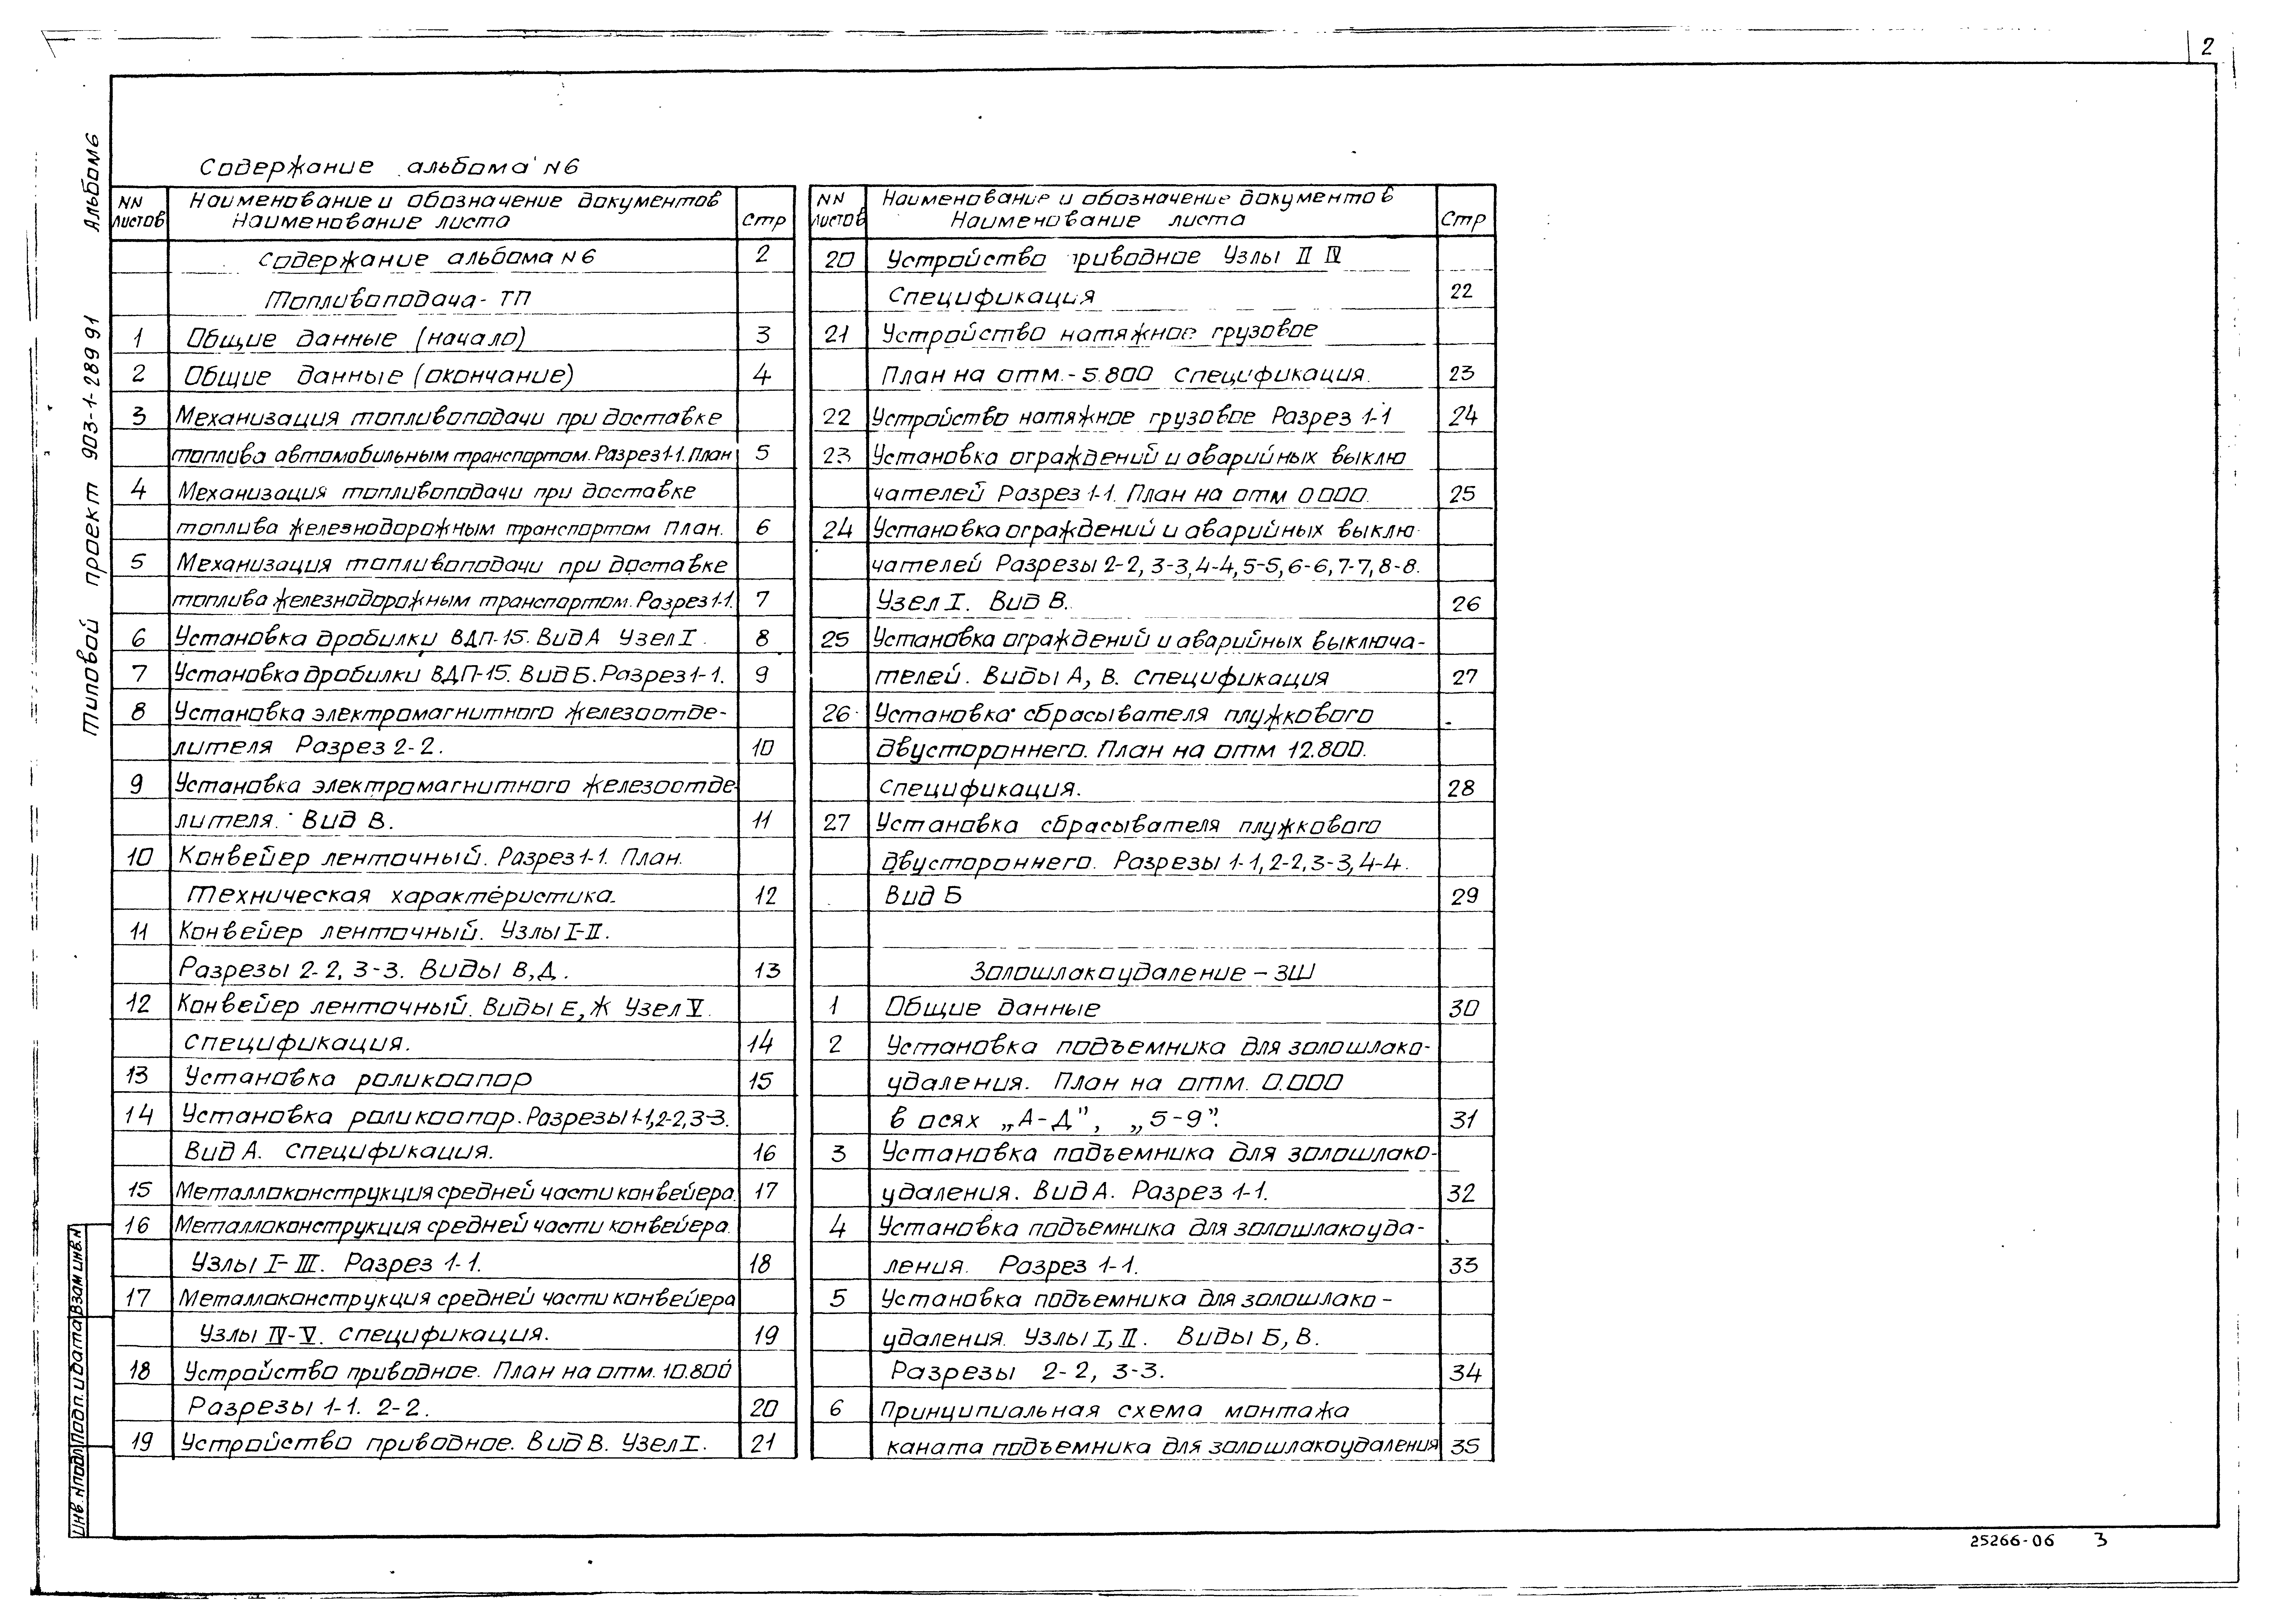 2
Альбом 6
Типовой проект 903-1-289 91
Содержание альбома N6
NN листов
Наименование и обозначение документов
Наименование листа
Стр
Содержание альбома N6 2
Топливоподача - ТП
1 Общие данные (начало) 3
2 Общие данные (окончание) 4
3 Механизация топливоподачи при доставке
топлива автомобильным транспортом. Разрез 1-1. План 5
4 Механизация топливоподачи при доставке
топлива железнодорожным транспортом План. 6
5 Механизация топливоподачи при доставке
топлива железнодорожным транспортом. Разрез 1-1. 7
6 Установка дробилки ВДП-15. Вид А Узел I. 8
7 Установка дробилки ВДП-15. Вид Б. Разрез 1-1. 9
8 Установка электромагнитного железоотде-
лителя Разрез 2-2. 10
9 Установка электромагнитного железоотде-
лителя. Вид В. 11
10 Конвейер ленточный. Разрез 1-1. План.
Техническая характеристика. 12
11 Конвейер ленточный. Узлы I-II.
Разрезы 2-2, 3-3. Виды В, Д. 13
12 Конвейер ленточный. Виды Е, Ж Узел V.
Спецификация. 14
13 Установка роликоопор 15
14 Установка роликоопор. Разрезы 1-1, 2-2, 3-3.
Вид А. Спецификация. 16
15 Металлоконструкция средней части конвейера. 17
16 Металлоконструкция средней части конвейера.
Узлы I-III. Разрез 1-1. 18
17 Металлоконструкция средней части конвейера
Узлы IV-V. Спецификация. 19
18 Устройство приводное. План на отм. 10.800
Разрезы 1-1. 2-2. 20
19 Устройство приводное. Вид В. Узел I. 21
NN листов
Наименование и обозначение документов
Наименование листа
Стр
20 Устройство приводное Узлы II IV
Спецификация 22
21 Устройство натяжное грузовое
План на отм. - 5.800 Спецификация. 23
22 Устройство натяжное грузовое Разрез 1-1 24
23 Установка ограждений и аварийных выклю
чателей Разрез 1-1. План на отм 0 000. 25
24 Установка ограждений и аварийных выклю-
чателей Разрезы 2-2, 3-3, 4-4, 5-5, 6-6, 7-7, 8-8.
Узел I. Вид В. 26
25 Установка ограждений и аварийных выключа-
телей. Виды А, В. Спецификация 27
26 Установка сбрасывателя плужкового
двустороннего. План на отм 12.800.
Спецификация. 28
27 Установка сбрасывателя плужкового
двустороннего. Разрезы 1-1, 2-2, 3-3, 4-4.
Вид Б 29
Золошлакоудаление - ЗШ
1 Общие данные 30
2 Установка подъемника для золошлако-
удаления. План на отм. 0.000
в осях „А-Д", „5-9". 31
3 Установка подъемника для золошлако-
удаления. Вид А. Разрез 1-1. 32
4 Установка подъемника для золошлакоуда-
ления. Разрез 1-1. 33
5 Установка подъемника для золошлако -
удаления. Узлы I, II. Виды Б, В.
Разрезы 2-2, 3-3. 34
6 Принципиальная схема монтажа
каната подъемника для золошлакоудаления 35
Инв. N подл. Подп. и дата Взам инв. N
25266-06 3